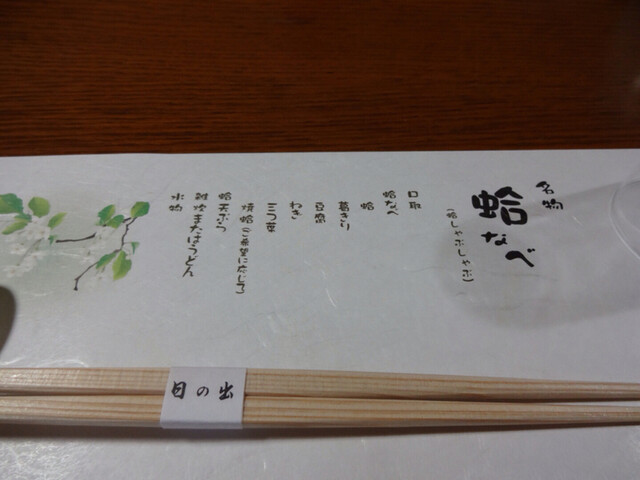 名物
蛤なべ
(蛤しゃぶしゃぶ)
口取
蛤なべ
蛤
葛きり
豆腐
ねぎ
三つ葉
焼蛤(ご希望に応じる)
蛤天ぷら
雑炊またはうどん
水物
日の出